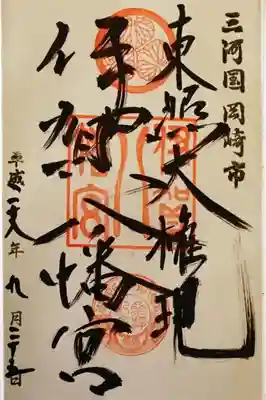 三河国岡崎市
東照大権現
伊賀八幡宮
平成二十九年九月二十五日